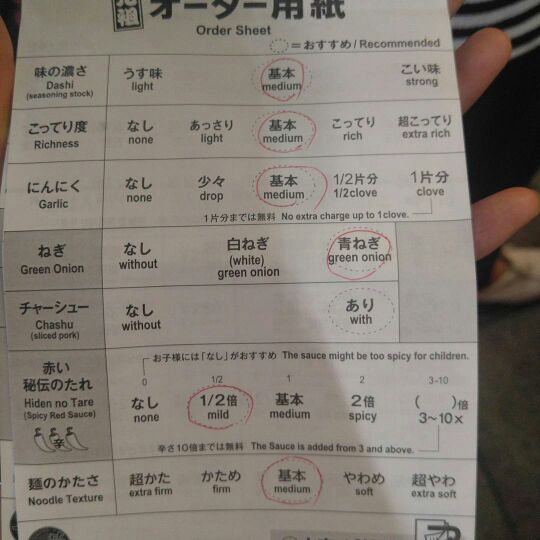 元祖 オーダー用紙
Order Sheet
=おすすめ/Recommended
味の濃さ うす味 基本 こい味
Dashi light medium strong
(seasoning stock)
こってり度 なし あっさり 基本 こってり 超こってり
Richness none light medium rich extra rich
にんにく なし 少々 基本 1/2片分 1片分
Garlic none drop medium 1/2clove clove
1片分までは無料 No extra charge up to 1clove.
ねぎ なし 白ねぎ 青ねぎ
Green Onion without (white) green onion
green onion
チャーシュー なし あり
Chashu without with
(sliced pork)
お子様には「なし」がおすすめ The sauce might be too spicy for children.
赤い 0 1/2 1 2 3-10
秘伝のたれ なし 1/2倍 基本 2倍 ( )倍
Hiden no Tare none mild medium spicy 3~10x
(Spicy Red Sauce)
辛
辛さ10倍までは無料 The Sauce is added from 3 and above.
麺のかたさ 超かた かため 基本 やわめ 超やわ
Noodle Texture extra firm firm medium soft extra soft